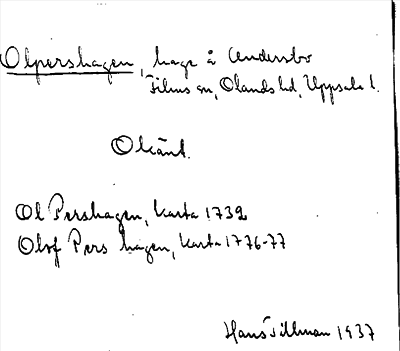 Olpershagen, hage å Andersbo
Films sn, Olands hd, Uppsala l.
Okänt.
Ol Pershagen, karta 1732
Olof Pers hagen, karta 1776-77
Hans Tillman 1937